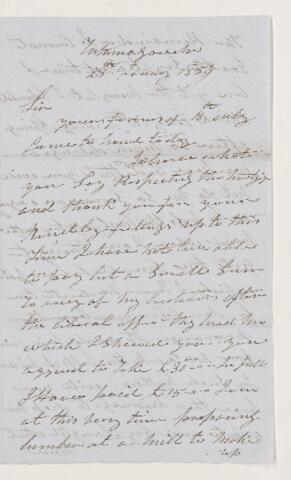 Tatamagouche
25th January 1859
Sir
your favour of 15th only
Came to hand to day
I observe what
you Say Respecting the Mortgage
and thank you for your
Kindly feelings up to this
Time I have not been able
to pay but a Small Sum
to any of my Creditors after
the liberal offer they made me
which I Shewed you - you
agreed to Take £30-0-0 in full
I Have paid £15-0-0 I am
at this very time preparing
lumber at a mill to Make
up